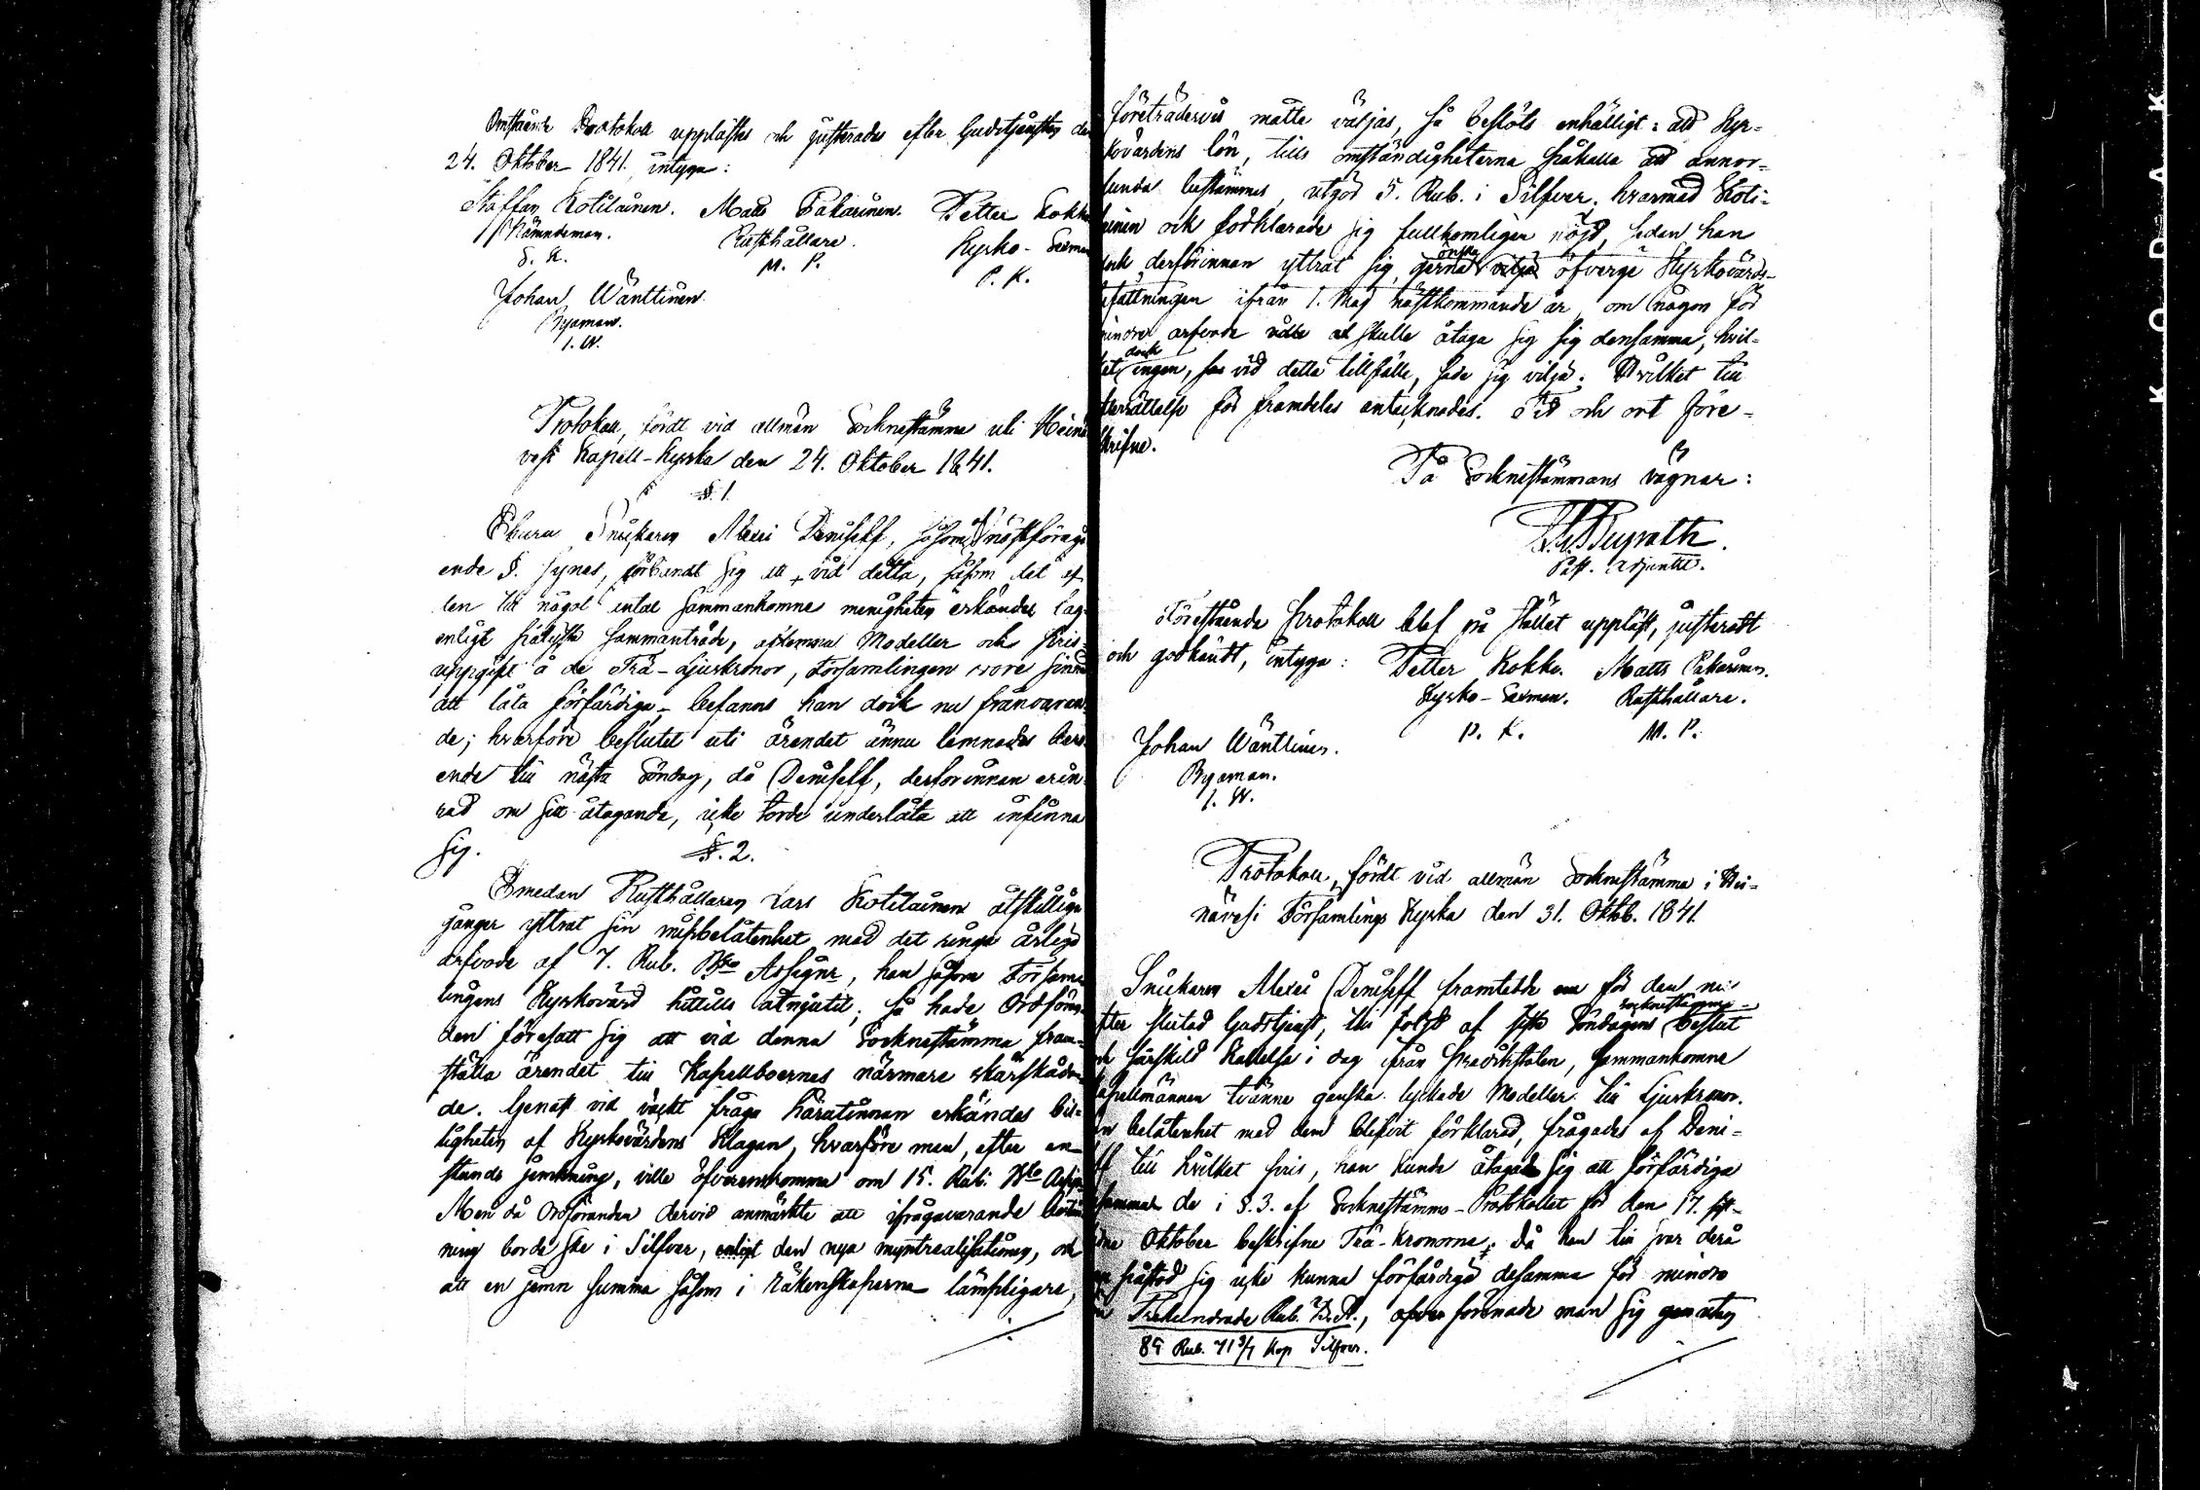 Omstående Protokoll upplästes och justerades efter Gudstjensten den
24. Oktober 1841, intyga:
Staffan Kotilainen. Matts Pakarinen. Petter Kokk
Nämndeman. Rusthållare. Kyrko-Sexman
S. K. M. P. P. K.
Johan Wänttinen.
Byaman.
I. W.
Protokoll, fördt vid allmän Socknestämma uti Heinä
vesi Kapell-Kyrka den 24. Oktober 1841.
§. 1.
Ehuru Snickaren Alexei Deniseff, såsom af nästföregå
ende §. synes, förbundit sig att vid detta, såsom det af
den till något antal sammankomne menigheten erkändes lag-
enligt pålysta sammanträde, aflemna Modeller och pris-
uppgift å de Trä-Ljuskronor, Församlingen vore sinnad
att låta förfärdiga, befanns han dock nu frånvaran-
de; hvarföre beslutet uti ärendet ännu lemnades bero-
ende till nästa Söndag, då Deniseff, derförinnan erin-
rad om sitt åtagande, icke torde underlåta att infinna
sig.
§. 2.
Emedan Rusthållaren Lars Kotilainen åtskilliga
gånger yttrat sin missbelåtenhet med det ringa årliga
arfvode af 7. Rub. Bko Assignr, han såsom Försam-
lingens Kyrkovärd hittills åtnjutit; så hade Ordföran-
den föresatt sig att vid denna Socknestämma fram-
ställa ärendet till Kapellboernes närmare skärskådan-
de. Genast vid väckt fråga härutinnan erkändes bil-
ligheten af Kyrkovärdens klagan, hvarföre man, efter en
stunds jemkning, ville öfverenskomma om 15. Rub. Bko Assign
Men då Ordföranden dervid anmärkte att ifrågavarande
ning borde ske i Silfver, enligt den nya myntrealisationen, och
att en jemn summa såsom i räkenskaperna lämpligare,
företrädesvis måtte väljas, så beslöts enhälligt: att Kyr-
kovärdens lön, tills omständigheterna påkalla att annor-
lunda bestämmes, utgör 5. Rub. i Silfver, hvarmed Koti-
lainen ock förklarade sig fullkomligen nöjd, sedan han
dock derförinnan yttrat sig gerna vilja öfverge Kyrkovärds-
befattningen ifrån 1. Maj nästkommande år, om någon för
mindre arfvode skulle åtaga sig densamma, hvil-
ket dock ingen, vid detta tillfälle, sade sig vilja. Hvilket till
efterrättelse för framdeles antecknades. Tid och ort före-
skrifne.
På Socknestämmans vägnar:
Past. Adjunct.
Förestående Protokoll blef på stället uppläst, justeradt
och godkändt, intyga: Petter Kokko. Matts Pakarinen.
Kyrko-Sexman. Rusthållare.
P. K. M. P.
Johan Wänttinen.
Byaman.
I. W.
Protokoll, fördt vid allmän Socknestämma i Hei-
nävesi Församlings Kyrka den 31. Oktob. 1841.
Snickaren Alexei Deniseff framtedde för den nu
efter slutad Gudstjenst, till följd af sista Söndagens Socknestämmo-beslut
och särskild kallelse i dag ifrån predikstolen, sammankomne
Kapellmännen tvänne ganska lyckade Modeller till Ljuskronor.
belåtenhet med dem blifvit förklarad, frågades af Deni-
ff till hvilket pris, han kunde åtaga sig att förfärdiga
de i §. 3. af Socknestämmo-Protokollet för den 17. sist-
Oktober beskrifne Trä-kronorne; då han till svar derå
påstod sig icke kunna förfärdiga desamma för mindre
Trehundrade Rub. B. A., öfver förenade man sig
85 Rub. 71 3/7 Kop Silfver.